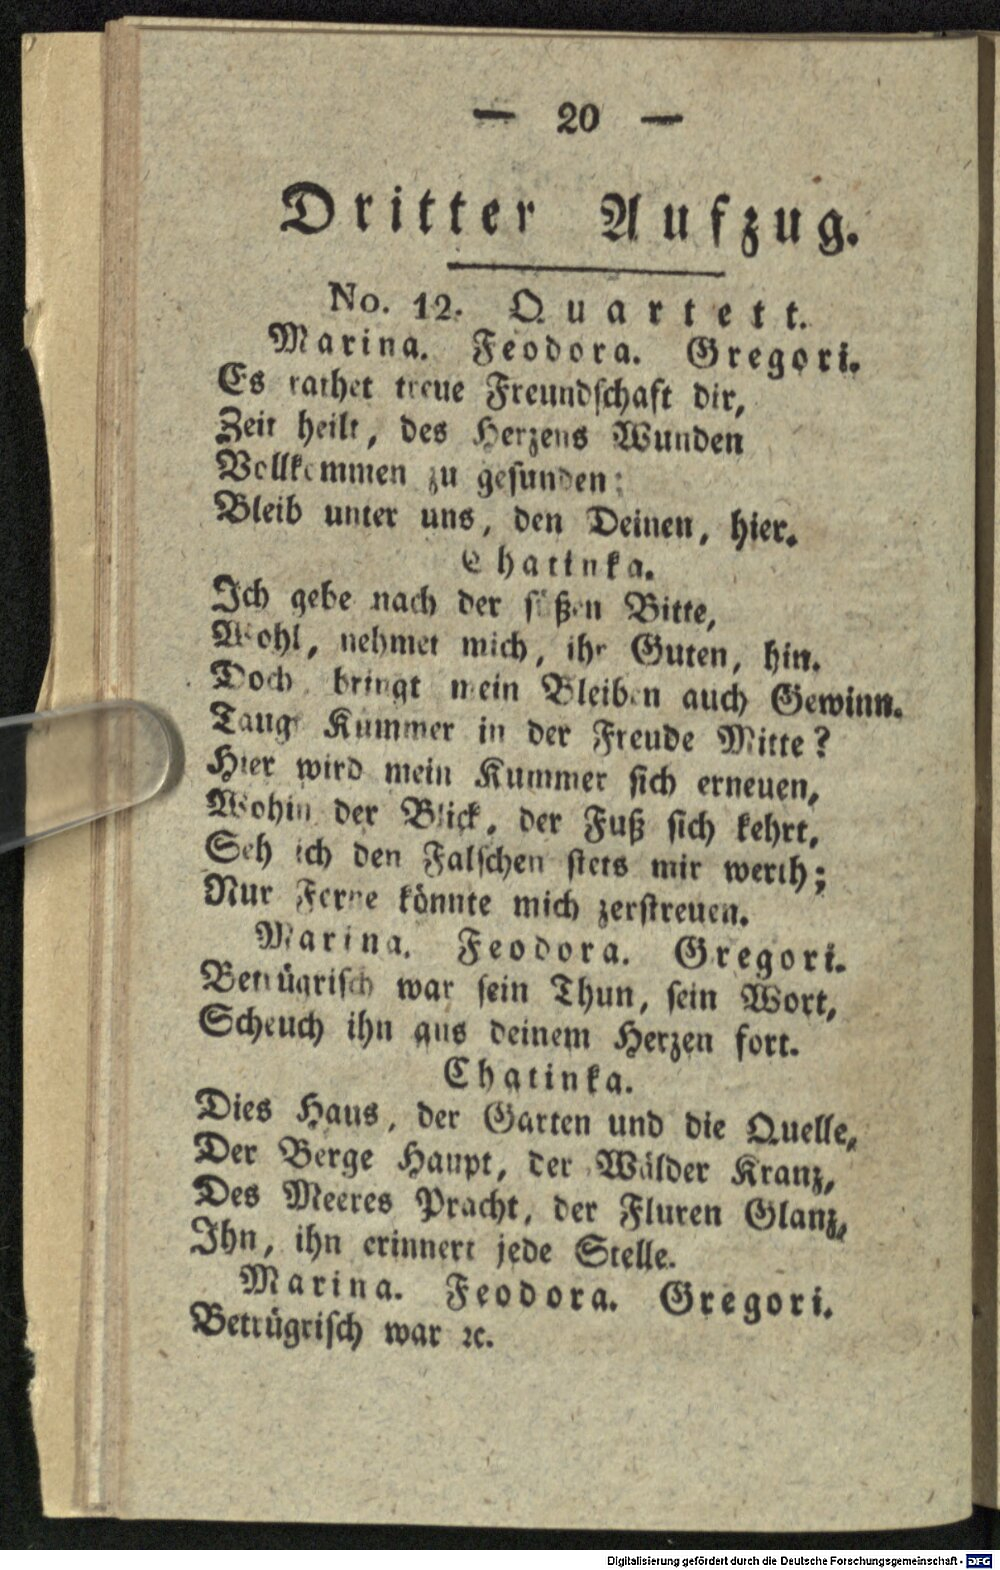 — 20 —
Dritter Aufzug.
No. 12. Quartett.
Marina. Feodora. Gregori.
Es rathet treue Freundschaft dir,
Zeit heilt, des Herzens Wunden
Vollkommen zu gesunden:
Bleib unter uns, den Deinen, hier.
Chatinka.
Ich gebe nach der süßen Bitte,
Wohl, nehmet mich, ihr Guten, hin.
Doch bringt mein Bleiben auch Gewinn.
Taugt Kummer in der Freude Mitte?
Hier wird mein Kummer sich erneuen,
Wohin der Blick, der Fuß sich kehrt,
Seh ich den Falschen stets mir werth;
Nur Ferne könnte mich zerstreuen.
Marina. Feodora. Gregori.
Betrügrisch war sein Thun, sein Wort,
Scheuch ihn aus deinem Herzen fort.
Chatinka.
Dies Haus, der Garten und die Quelle,
Der Berge Haupt, der Wälder Kranz,
Des Meeres Pracht, der Fluren Glanz,
Ihn, ihn erinnert jede Stelle.
Marina. Feodora. Gregori.
Betrügrisch war ꝛc.
Digitalisierung gefördert durch die Deutsche Forschungsgemeinschaft - DFG